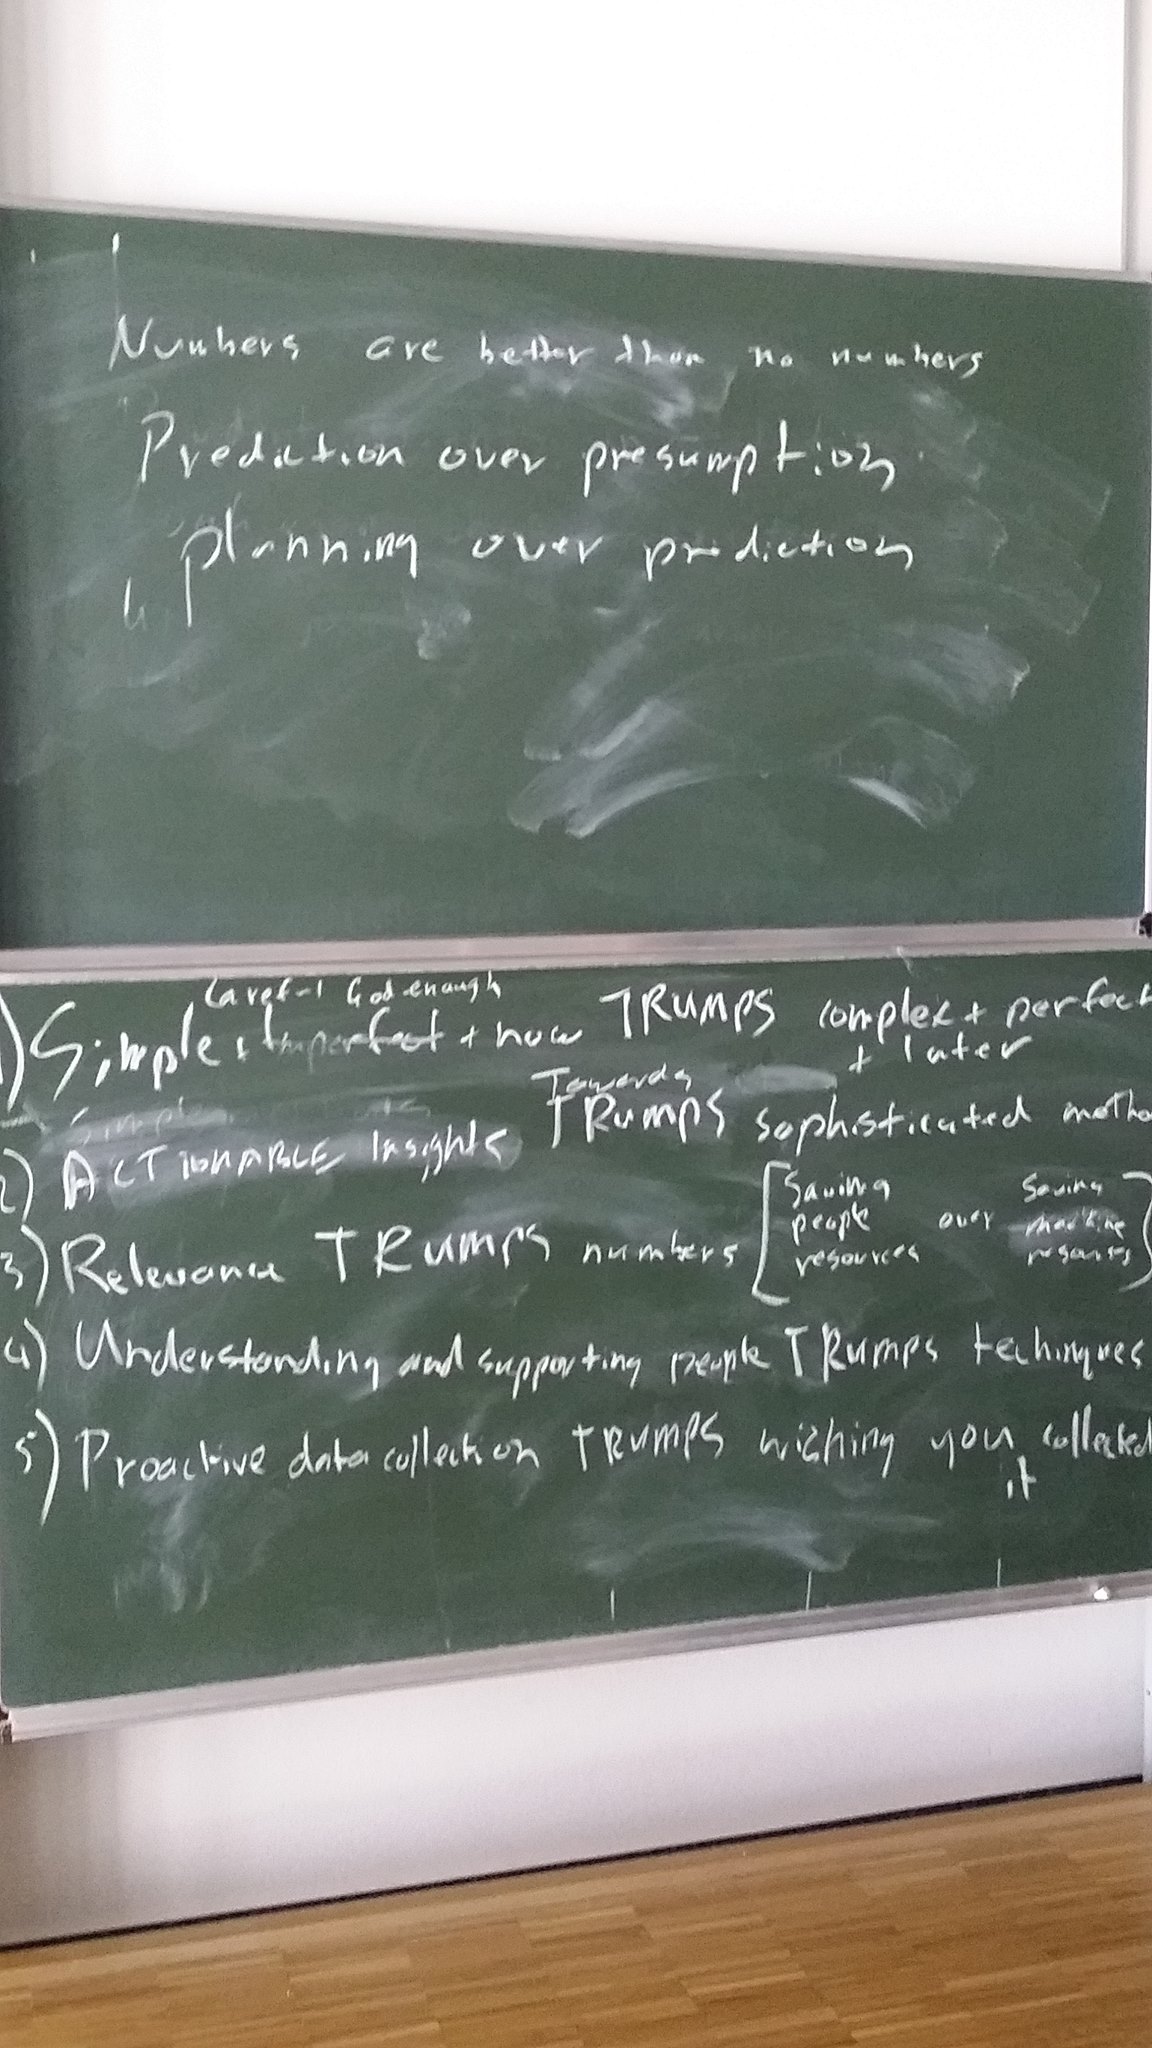 Numbers are better than no numbers
Prediction over presumption
planning over prediction
Good enough
1) Simple + Imperfect + now TRUMPS complex + perfect
+ later
Towards
Simple
2) ACTIONABLE Insights TRUMPS sophisticated metho
3) Relevance TRUMPS numbers [saving people resources over saving machine resources]
4) Understanding and supporting people TRUMPS techniques
5) Proactive data collection TRUMPS wishing you collected
it